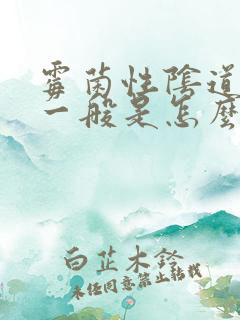 霉菌性陰道
一般是怎麼
白芷木鈴
未经同意禁止转载